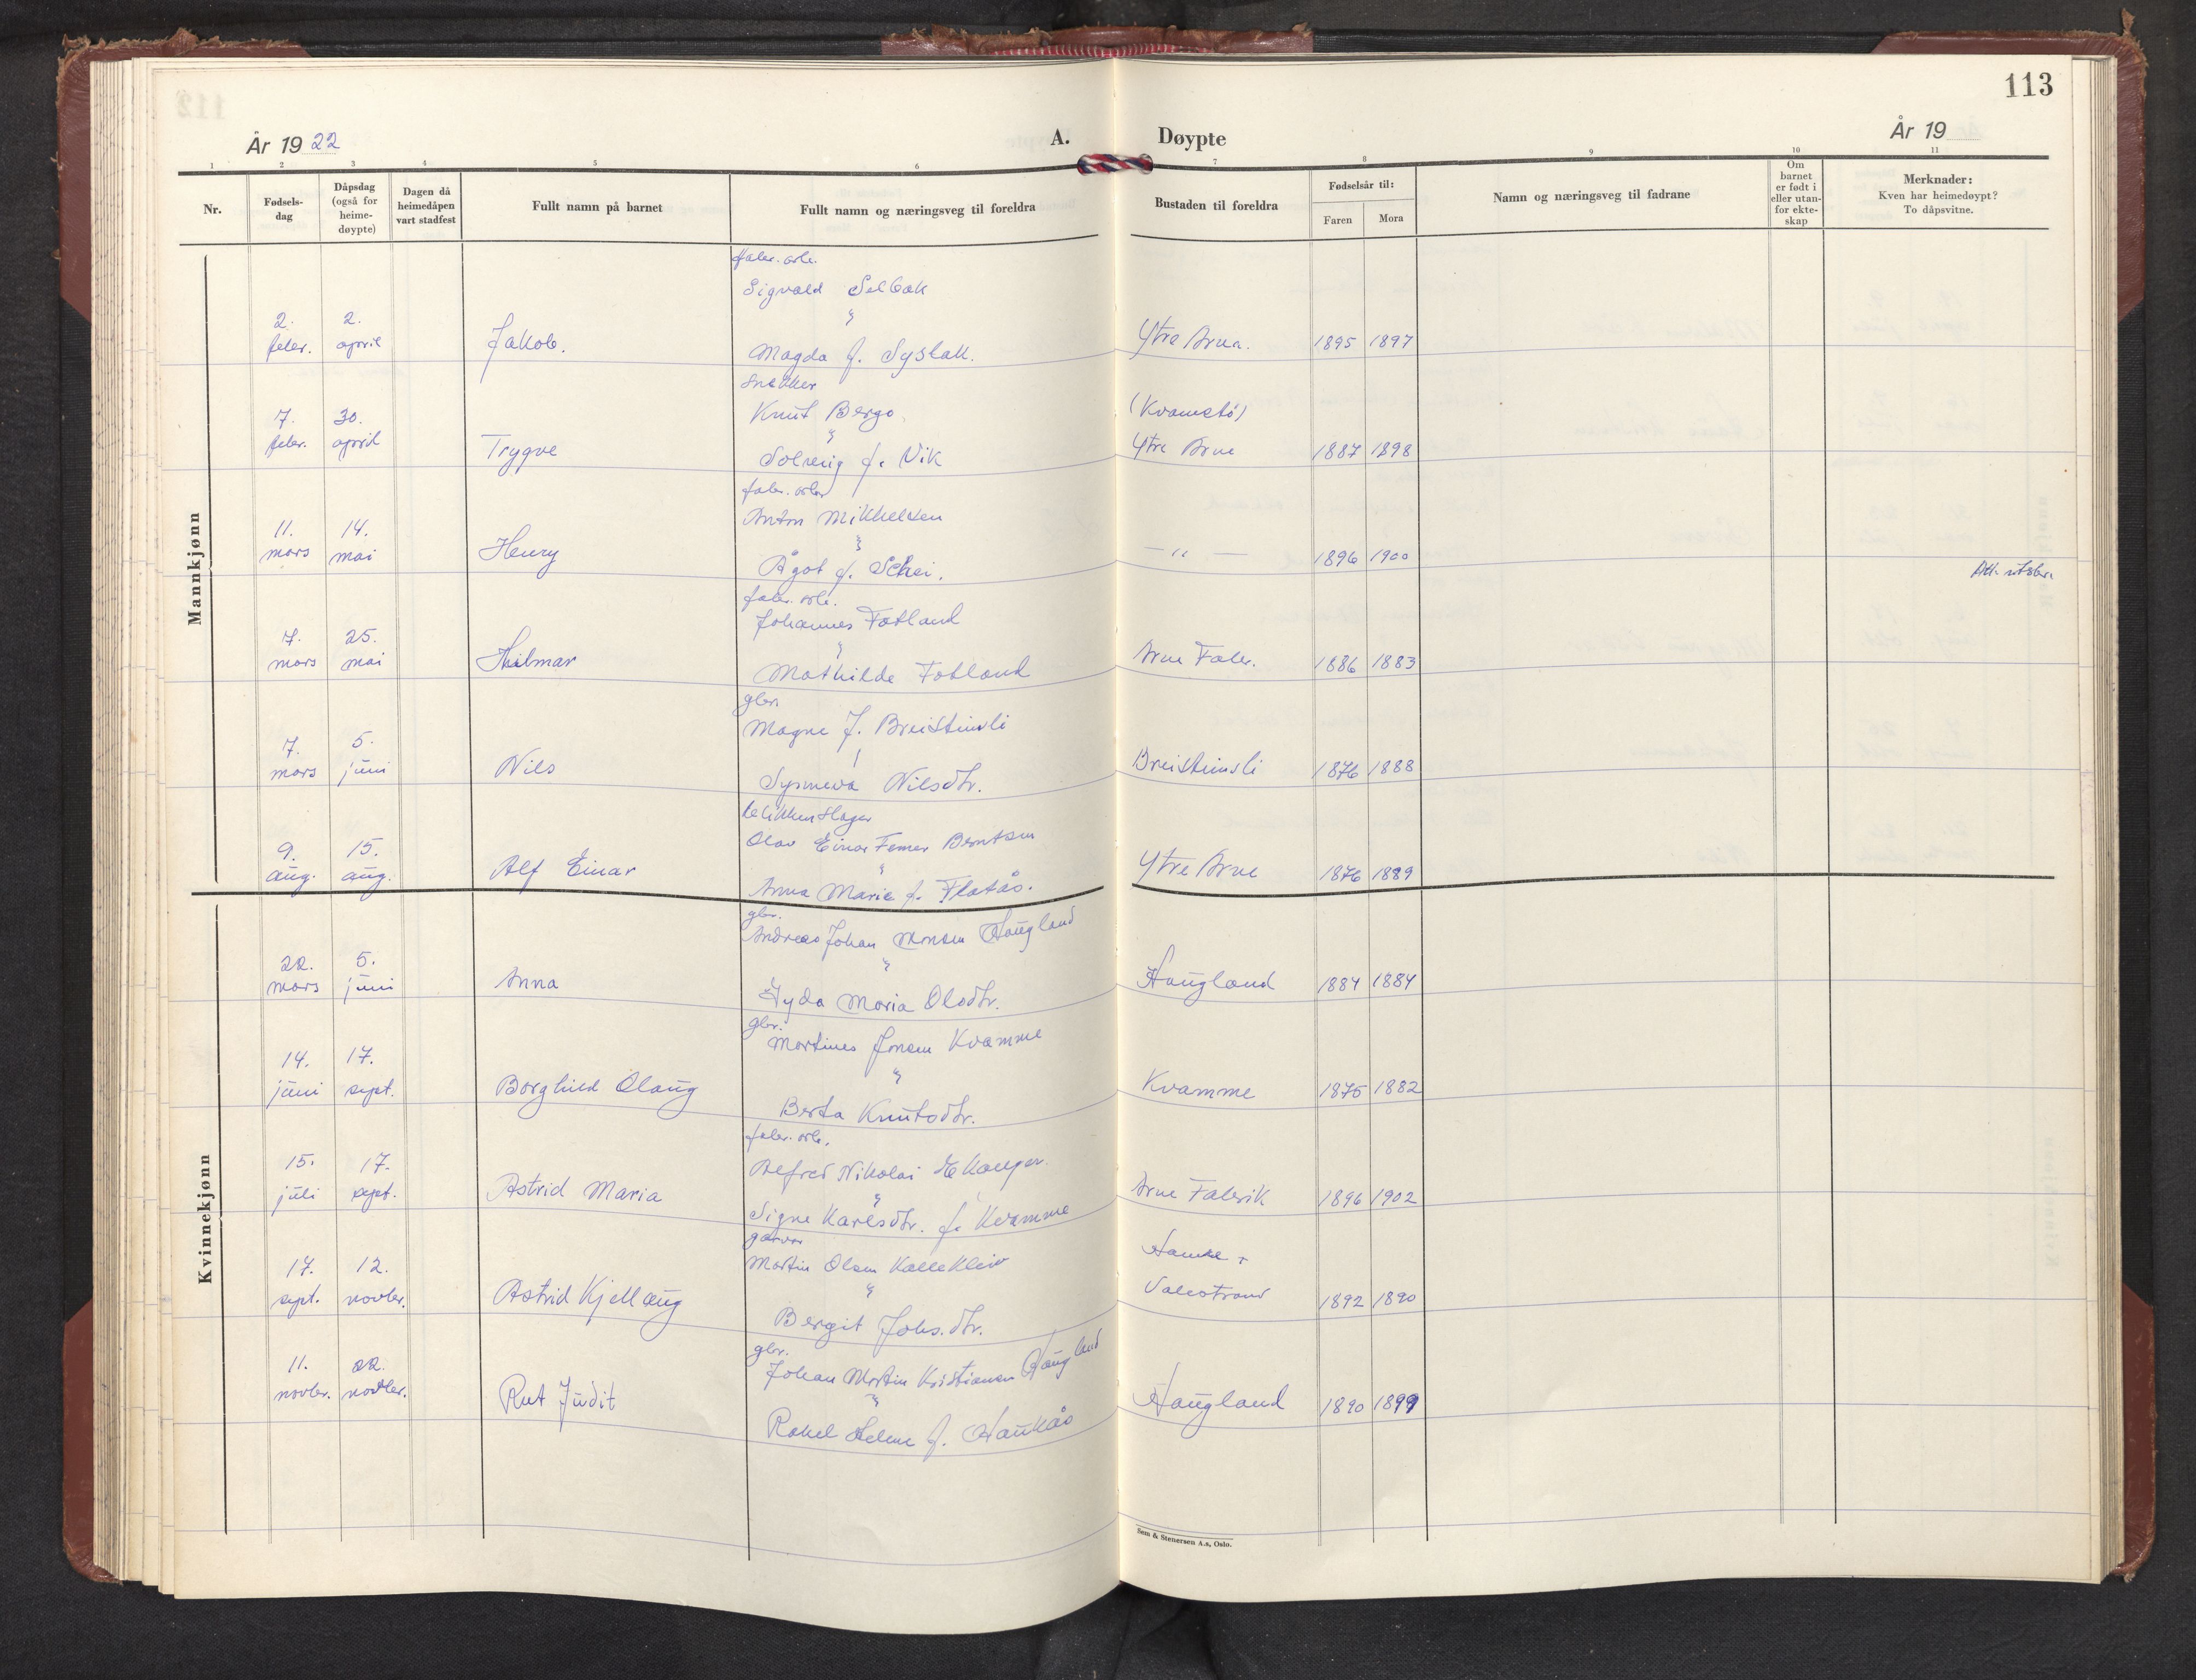 113
År 1922
A.
Døypte
År 19
1 2 3 4 5 6 7 8 9 10 11
Nr.
Fødsels-
dag
Dåpsdag
(også for
heime-
døypte)
Dagen då
heimedåpen
vart stadfest
Fullt namn på barnet
Fullt namn og næringsveg til foreldra
Bustaden til foreldra
Fødselsår til:
Faren
Mora
Namn og næringsveg til fadrane
Om
barnet
er født i
eller utan-
for ekte-
skap
Merknader:
Kven har heimedøypt?
To dåpsvitne.
Mankjønn
fabr. arb.
Sigvald Selbak
"
2. 2.
febr. april Jakob. Magda f. Syslak. Ytre Arna. 1895 1897
snekker
Knut Bergo (Kvamstø)
7. 30. "
febr. april Trygve Solveig f. Vik Ytre Arna 1887 1898
fabr. arb.
Anton Mikkelsen
11. 14. "
mars mai Henry Ågot f. Schei. — " — 1896 1900
Att. utskr.
fabr. arb.
Johannes Fotland
7. 25. "
mars mai Hilmar Mathilde Fotland Arne Fabr. 1886 1883
gbr.
Magne J. Breisteinsli
7. 5.
mars juni Nils Synneva Nilsdtr. Breisteinsli 1876 1888
blikkenslager
Olav Einar Femer Berntsen
9. 15. "
aug. aug. Alf Einar Anna Marie f. Flatås. Ytre Arne 1876 1889
Kvinnekjønn
gbr.
Andreas Johan Monsen Haugland
22. 5. "
mars juni Anna Gyda Maria Olsdtr. Haugland 1884 1884
gbr.
Martines Jonsen Kvamme
14. 17. "
juni sept. Borghild Olaug Berta Knutsdtr. Kvamme 1875 1882
fabr. arb.
Alfred Nikolai Ekanger
15. 17. "
juli sept. Astrid Maria Signe Karlsdtr. f. Kvamme Arne Fabrik 1896 1902
garvar
Martin Olsen Kallekleiv
17. 12. "
sept. novbr. Astrid Kjellaug Bergit Johs.dtr. Valestrand 1892 1890
gbr.
Johan Martin Kristiansen Haugland
11. 22. "
novbr. novbr. Rut Judit Rakel Helene f. Haukås Haugland 1890 1899
Sem & Stenersen A.s, Oslo.